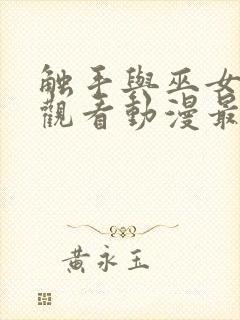 触手與巫女
觀看動漫最
黃永玉